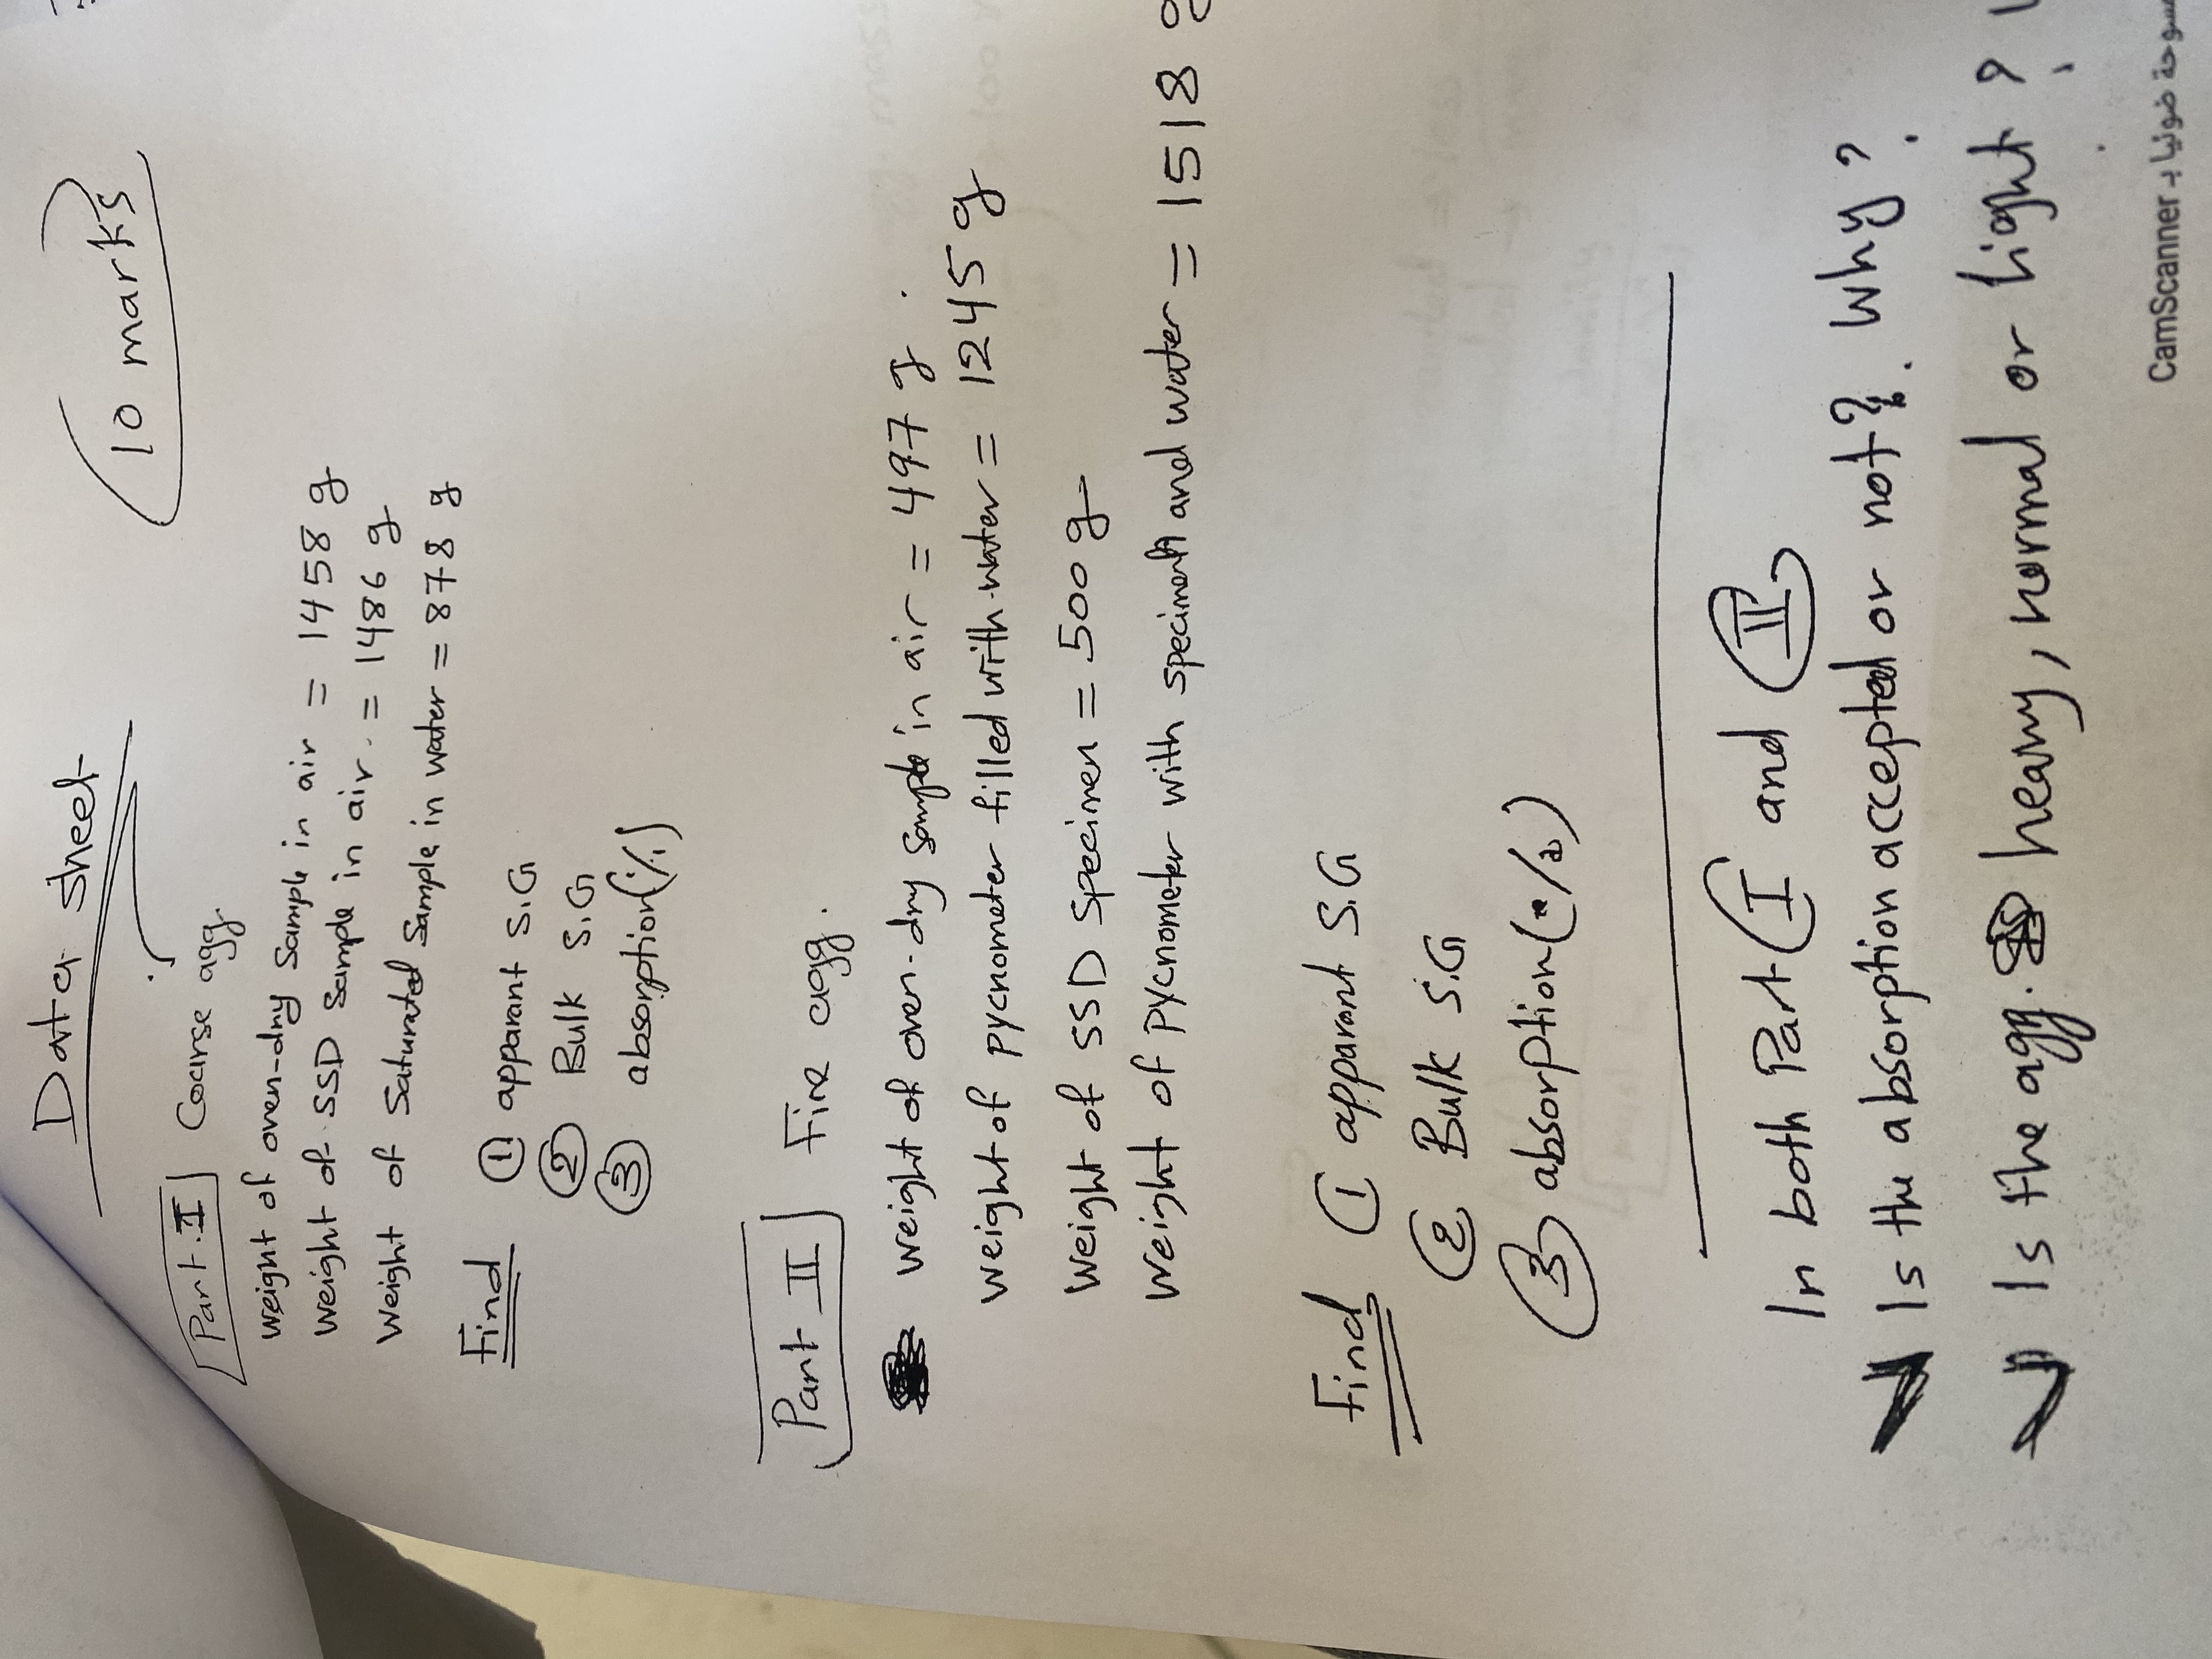 Data sheet
10 marks
Part I Coarse agg.
weight of oven-dry sample in air = 1458 g
weight of SSD sample in air. = 1486 g
weight of saturated sample in water = 878 g
Find ① apparant S.G
② Bulk S.G
③ absorption(%)
Part II Fine agg.
weight of oven-dry sample in air = 497 g.
weight of pycnometer filled with water = 1245 g
weight of SSD specimen = 500 g
weight of pycnometer with speciment and water = 1518 g
Find ① apparant S.G
② Bulk S.G
③ absorption(%)
In both Part I and II
Is the absorption accepted or not?. why?.
Is the agg. heavy, normal or light?
CamScanner ضوئيا بـ